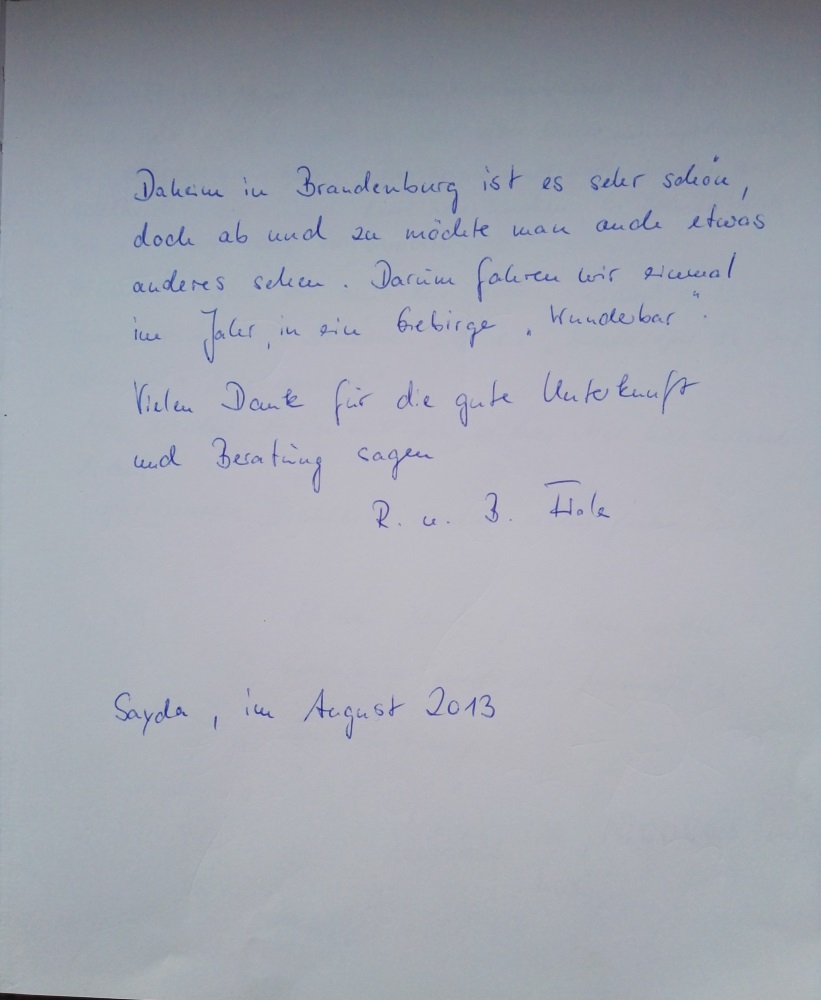 Daheim in Brandenburg ist es sehr schön,
doch ab und zu möchte man auch etwas
anderes sehen. Darum fahren wir einmal
im Jahr, in ein Gebirge „Wunderbar“.
Vielen Dank für die gute Unterkunft
und Beratung sagen
R. u. B.
Sayda, im August 2013